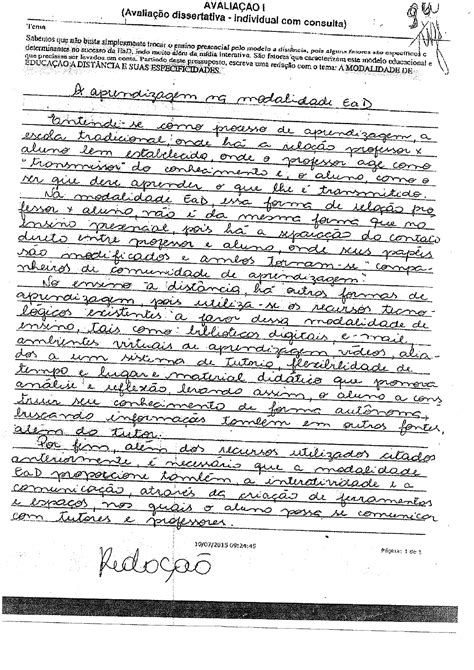 AVALIAÇÃO I
(Avaliação dissertativa - individual com consulta)
Tema
Sabemos que não basta simplesmente trocar o ensino presencial pelo modelo a distância, pois alguns fatores são específicos e
determinantes no sucesso da EaD, indo muito além da mídia interativa. São fatores que caracterizam este modelo educacional e
que precisam ser levados em conta. Partindo deste pressuposto, escreva uma redação com o tema: A MODALIDADE DE
EDUCAÇÃO A DISTÂNCIA E SUAS ESPECIFICIDADES.
A aprendizagem na modalidade EaD
Entende-se como processo de aprendizagem, a
escola tradicional, onde há a relação professor x
aluno bem estabelecido, onde o professor age como
"transmissor" do conhecimento e, o aluno, como o
ser que deve aprender o que lhe é transmitido.
Na modalidade EaD, essa forma de relação pro
fessor x aluno, não é da mesma forma que no
ensino presencial, pois há a separação do contato
direto entre professor e aluno, onde seus papéis
são modificados e ambos tornam-se "compa-
nheiros de comunidade de aprendizagem".
No ensino a distância, há outras formas de
aprendizagem, pois utiliza-se os recursos tecno-
lógicos existentes a favor dessa modalidade de
ensino, tais como: bibliotecas digitais, e-mail,
ambientes virtuais de aprendizagem, vídeos, alia-
dos a um sistema de tutoria, flexibilidade de
tempo e lugar e material didático que promova
análise e reflexão, levando assim, o aluno a cons
truir seu conhecimento de forma autônoma,
buscando informação também em outras fontes,
além do tutor.
Por fim, além dos recursos utilizados citados
anteriormente, é necessário que a modalidade
EaD proporcione também, a interatividade e a
comunicação, através da criação de ferramentas
e espaços, nos quais o aluno possa se comunicar
com tutores e professores.
10/07/2015 09:24:45
Página: 1 de 1
Redação